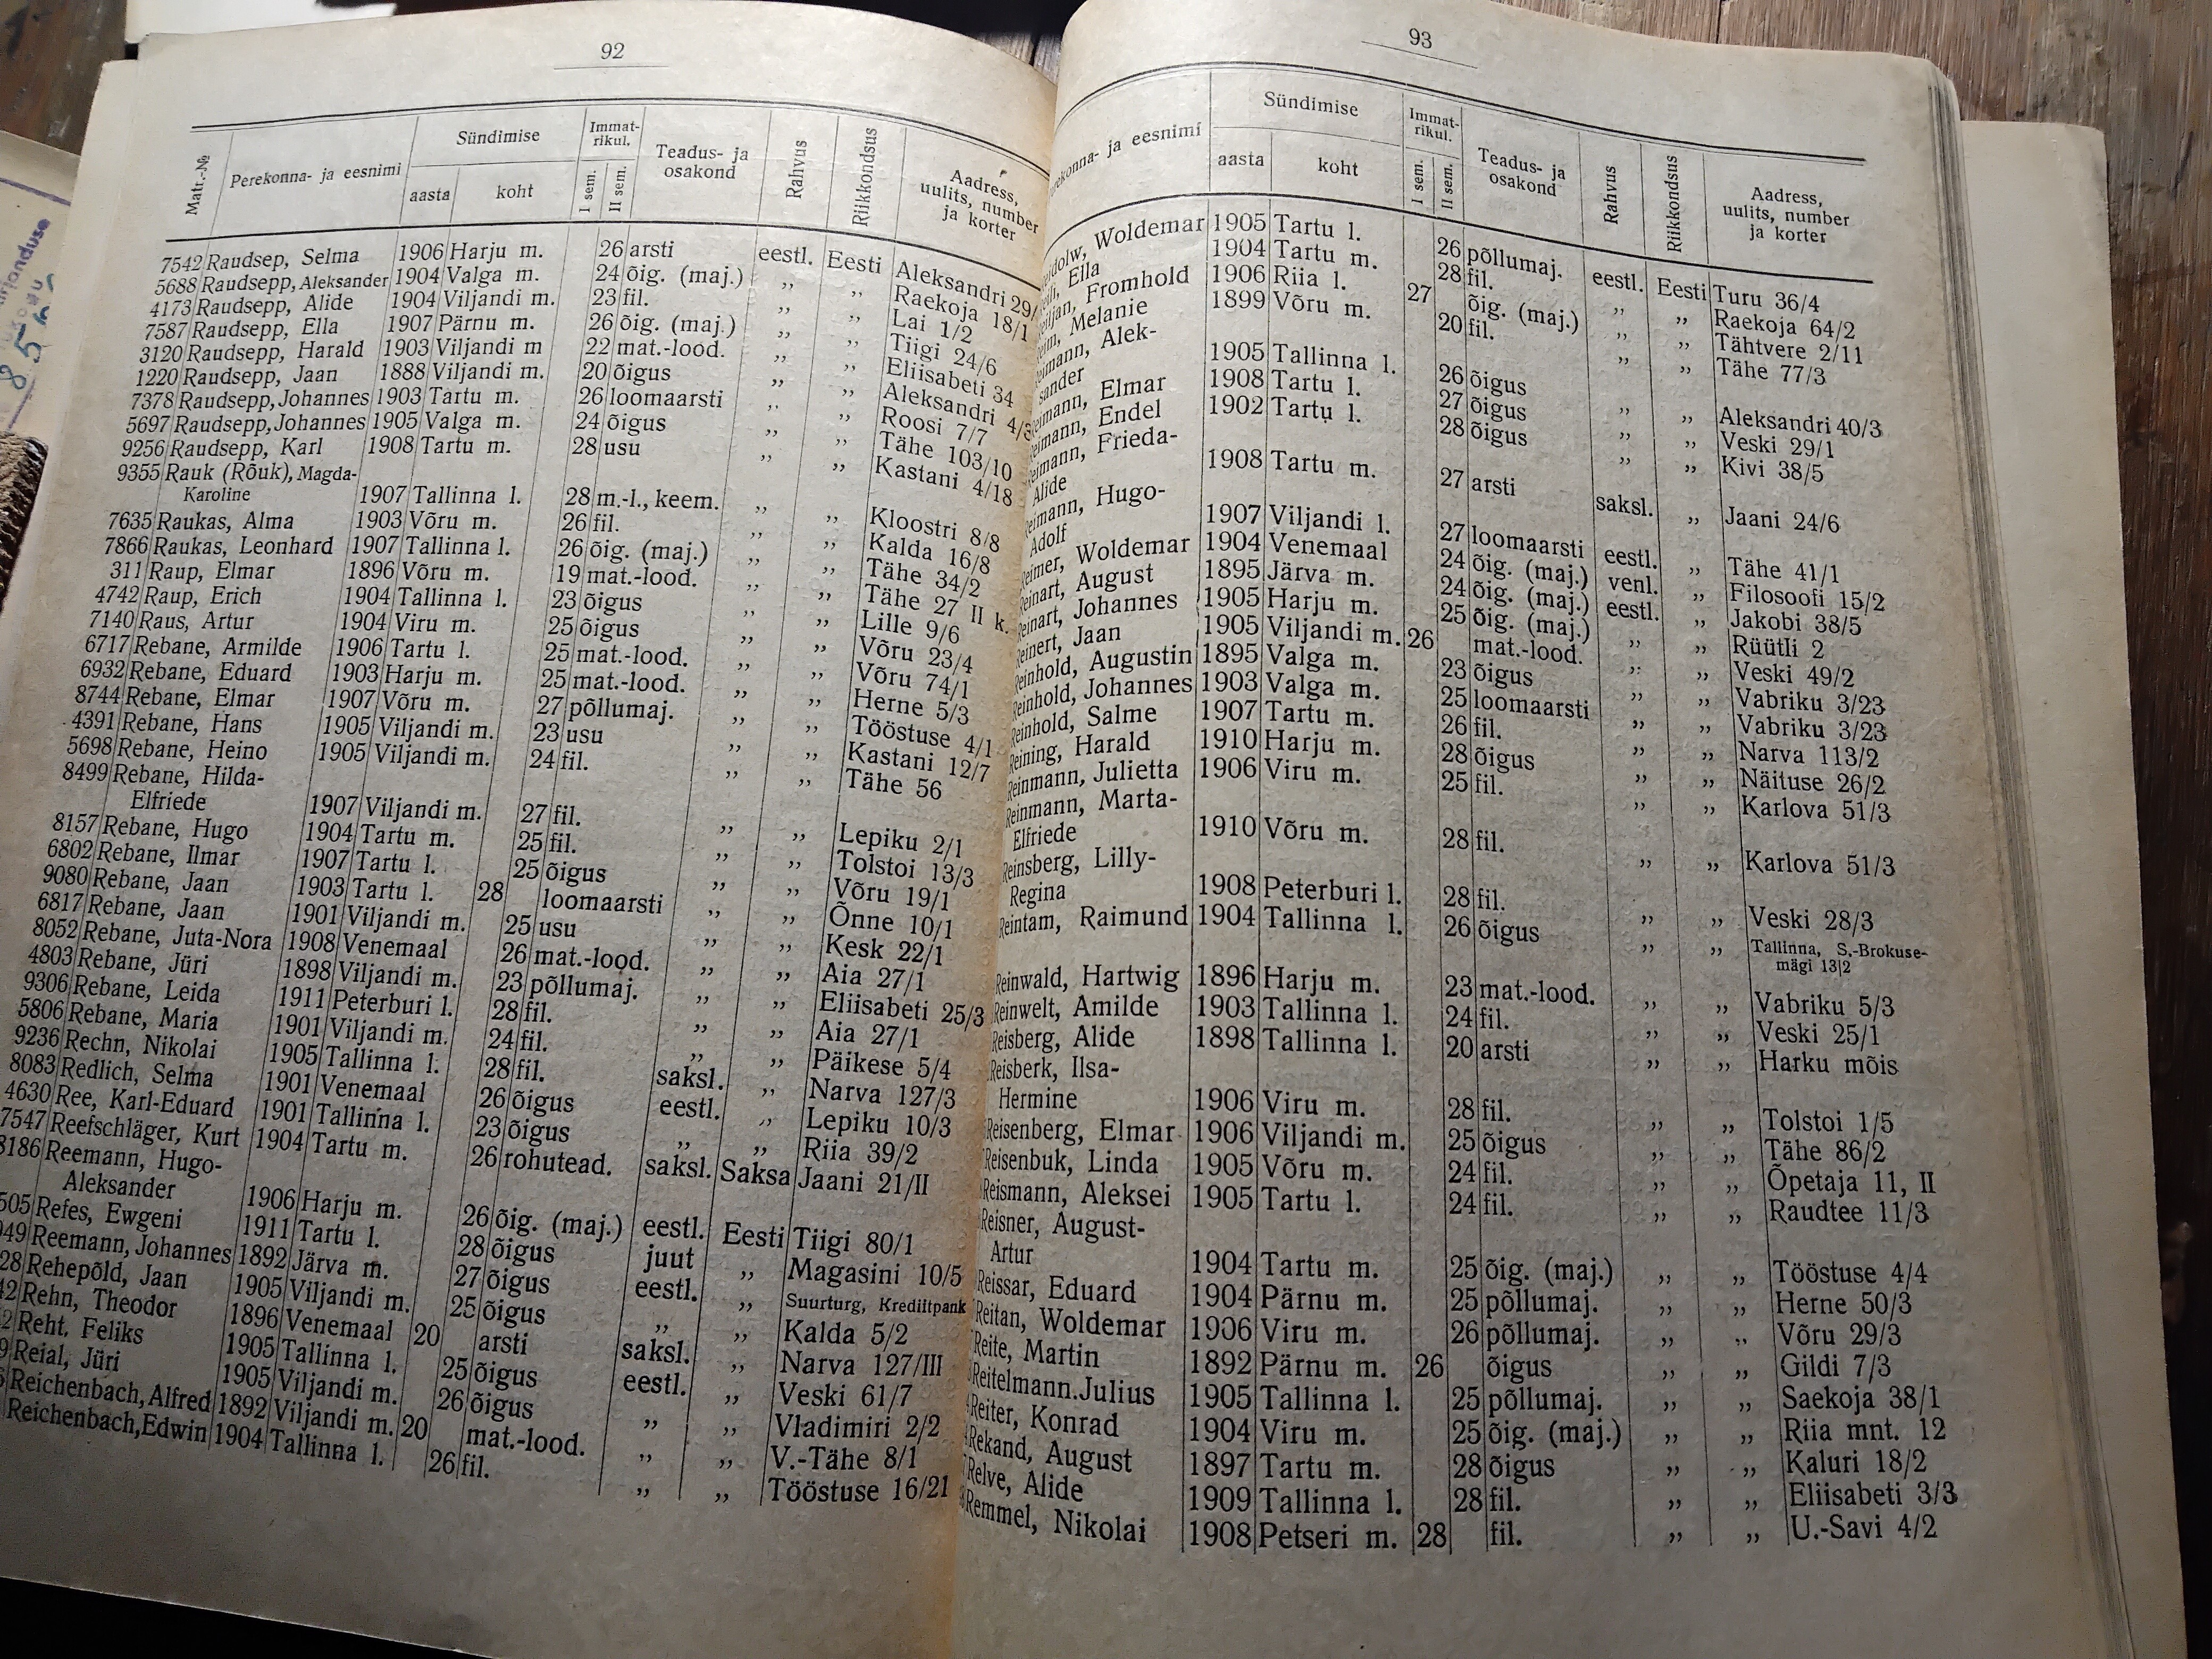 92
Matr.-№ Perekonna- ja eesnimi Sündimise aasta koht Immat-rikul. I sem. II sem. Teadus- ja osakond Rahvus Riikkondsus Aadress, uulits, number ja korter
7542 Raudsep, Selma 1906 Harju m. 26 arsti eestl. Eesti Aleksandri 29/
5688 Raudsepp, Aleksander 1904 Valga m. 24 õig. (maj.) „ „ Raekoja 18/1
4173 Raudsepp, Alide 1904 Viljandi m. 23 fil. „ „ Lai 1/2
7587 Raudsepp, Ella 1907 Pärnu m. 26 õig. (maj.) „ „ Tiigi 24/6
3120 Raudsepp, Harald 1903 Viljandi m 22 mat.-lood. „ „ Eliisabeti 34
1220 Raudsepp, Jaan 1888 Viljandi m. 20 õigus „ „ Aleksandri 4/3
7378 Raudsepp, Johannes 1903 Tartu m. 26 loomaarsti „ „ Roosi 7/7
5697 Raudsepp, Johannes 1905 Valga m. 24 õigus „ „ Tähe 103/10
9256 Raudsepp, Karl 1908 Tartu m. 28 usu „ „ Kastani 4/18
9355 Rauk (Rõuk), Magda-
Karoline 1907 Tallinna l. 28 m.-l., keem. „ „ Kloostri 8/8
7635 Raukas, Alma 1903 Võru m. 26 fil. „ „ Kalda 16/8
7866 Raukas, Leonhard 1907 Tallinna l. 26 õig. (maj.) „ „ Tähe 34/2
311 Raup, Elmar 1896 Võru m. 19 mat.-lood. „ „ Tähe 27 II k.
4742 Raup, Erich 1904 Tallinna l. 23 õigus „ „ Lille 9/6
7140 Raus, Artur 1904 Viru m. 25 õigus „ „ Võru 23/4
6717 Rebane, Armilde 1906 Tartu l. 25 mat.-lood. „ „ Võru 74/1
6932 Rebane, Eduard 1903 Harju m. 25 mat.-lood. „ „ Herne 5/3
8744 Rebane, Elmar 1907 Võru m. 27 põllumaj. „ „ Tööstuse 4/1
4391 Rebane, Hans 1905 Viljandi m. 23 usu „ „ Kastani 12/7
5698 Rebane, Heino 1905 Viljandi m. 24 fil. „ „ Tähe 56
8499 Rebane, Hilda-
Elfriede 1907 Viljandi m. 27 fil. „ „ Lepiku 2/1
8157 Rebane, Hugo 1904 Tartu m. 25 fil. „ „ Tolstoi 13/3
6802 Rebane, Ilmar 1907 Tartu l. 25 õigus „ „ Võru 19/1
9080 Rebane, Jaan 1903 Tartu l. 28 loomaarsti „ „ Õnne 10/1
6817 Rebane, Jaan 1901 Viljandi m. 25 usu „ „ Kesk 22/1
8052 Rebane, Juta-Nora 1908 Venemaal 26 mat.-lood. „ „ Aia 27/1
4803 Rebane, Jüri 1898 Viljandi m. 23 põllumaj. „ „ Eliisabeti 25/3
9306 Rebane, Leida 1911 Peterburi l. 28 fil. „ „ Aia 27/1
5806 Rebane, Maria 1901 Viljandi m. 24 fil. „ „ Päikese 5/4
9236 Rechn, Nikolai 1905 Tallinna l. 28 fil. saksl. „ Narva 127/3
8083 Redlich, Selma 1901 Venemaal 26 õigus eestl. „ Lepiku 10/3
4630 Ree, Karl-Eduard 1901 Tallinna l. 23 õigus „ „ Riia 39/2
7547 Reefschläger, Kurt 1904 Tartu m. 26 rohutead. saksl. Saksa Jaani 21/II
8186 Reemann, Hugo-
Aleksander 1906 Harju m. 26 õig. (maj.) eestl. Eesti Tiigi 80/1
505 Refes, Ewgeni 1911 Tartu l. 28 õigus juut „ Magasini 10/5
949 Reemann, Johannes 1892 Järva m. 27 õigus eestl. „ Suurturg, Krediitpank
28 Rehepõld, Jaan 1905 Viljandi m. 25 õigus „ „ Kalda 5/2
42 Rehn, Theodor 1896 Venemaal 20 arsti saksl. „ Narva 127/III
2 Reht, Feliks 1905 Tallinna l. 25 õigus eestl. „ Veski 61/7
9 Reial, Jüri 1905 Viljandi m. 26 õigus „ „ Vladimiri 2/2
Reichenbach, Alfred 1892 Viljandi m. 20 mat.-lood. „ „ V.-Tähe 8/1
Reichenbach, Edwin 1904 Tallinna l. 26 fil. „ „ Tööstuse 16/21
93
ekonna- ja eesnimi Sündimise aasta koht Immat-rikul. I sem. II sem. Teadus- ja osakond Rahvus Riikkondsus Aadress, uulits, number ja korter
dolw, Woldemar 1905 Tartu l. 26 põllumaj. eestl. Eesti Turu 36/4
Ella 1904 Tartu m. 28 fil. „ „ Raekoja 64/2
Fromhold 1906 Riia l. 27 õig. (maj.) „ „ Tähtvere 2/11
Melanie 1899 Võru m. 20 fil. „ „ Tähe 77/3
eimann, Alek-
sander 1905 Tallinna l. 26 õigus „ „ Aleksandri 40/3
eimann, Elmar 1908 Tartu l. 27 õigus „ „ Veski 29/1
eimann, Endel 1902 Tartu l. 28 õigus „ „ Kivi 38/5
eimann, Frieda-
Alide 1908 Tartu m. 27 arsti saksl. „ Jaani 24/6
eimann, Hugo-
Adolf 1907 Viljandi l. 27 loomaarsti eestl. „ Tähe 41/1
Reimer, Woldemar 1904 Venemaal 24 õig. (maj.) venl. „ Filosoofi 15/2
Reinart, August 1895 Järva m. 24 õig. (maj.) eestl. „ Jakobi 38/5
Reinart, Johannes 1905 Harju m. 25 õig. (maj.) „ „ Rüütli 2
Reinert, Jaan 1905 Viljandi m. 26 mat.-lood. „ „ Veski 49/2
Reinhold, Augustin 1895 Valga m. 23 õigus „ „ Vabriku 3/23
Reinhold, Johannes 1903 Valga m. 25 loomaarsti „ „ Vabriku 3/23
Reinhold, Salme 1907 Tartu m. 26 fil. „ „ Narva 113/2
Reining, Harald 1910 Harju m. 28 õigus „ „ Näituse 26/2
Reinmann, Julietta 1906 Viru m. 25 fil. „ „ Karlova 51/3
Reinmann, Marta-
Elfriede 1910 Võru m. 28 fil. „ „ Karlova 51/3
Reinsberg, Lilly-
Regina 1908 Peterburi l. 28 fil. „ „ Veski 28/3
Reintam, Raimund 1904 Tallinna l. 26 õigus „ „ Tallinna, S.-Brokuse-
mägi 13|2
Reinwald, Hartwig 1896 Harju m. 23 mat.-lood. „ „ Vabriku 5/3
Reinwelt, Amilde 1903 Tallinna l. 24 fil. „ „ Veski 25/1
Reisberg, Alide 1898 Tallinna l. 20 arsti „ „ Harku mõis
Reisberk, Ilsa-
Hermine 1906 Viru m. 28 fil. „ „ Tolstoi 1/5
Reisenberg, Elmar 1906 Viljandi m. 25 õigus „ „ Tähe 86/2
Reisenbuk, Linda 1905 Võru m. 24 fil. „ „ Õpetaja 11, II
Reismann, Aleksei 1905 Tartu l. 24 fil. „ „ Raudtee 11/3
Reisner, August-
Artur 1904 Tartu m. 25 õig. (maj.) „ „ Tööstuse 4/4
Reissar, Eduard 1904 Pärnu m. 25 põllumaj. „ „ Herne 50/3
Reitan, Woldemar 1906 Viru m. 26 põllumaj. „ „ Võru 29/3
Reite, Martin 1892 Pärnu m. 26 õigus „ „ Gildi 7/3
Reitelmann.Julius 1905 Tallinna l. 25 põllumaj. „ „ Saekoja 38/1
Reiter, Konrad 1904 Viru m. 25 õig. (maj.) „ „ Riia mnt. 12
Rekand, August 1897 Tartu m. 28 õigus „ „ Kaluri 18/2
Relve, Alide 1909 Tallinna l. 28 fil. „ „ Eliisabeti 3/3
Remmel, Nikolai 1908 Petseri m. 28 fil. „ „ U.-Savi 4/2